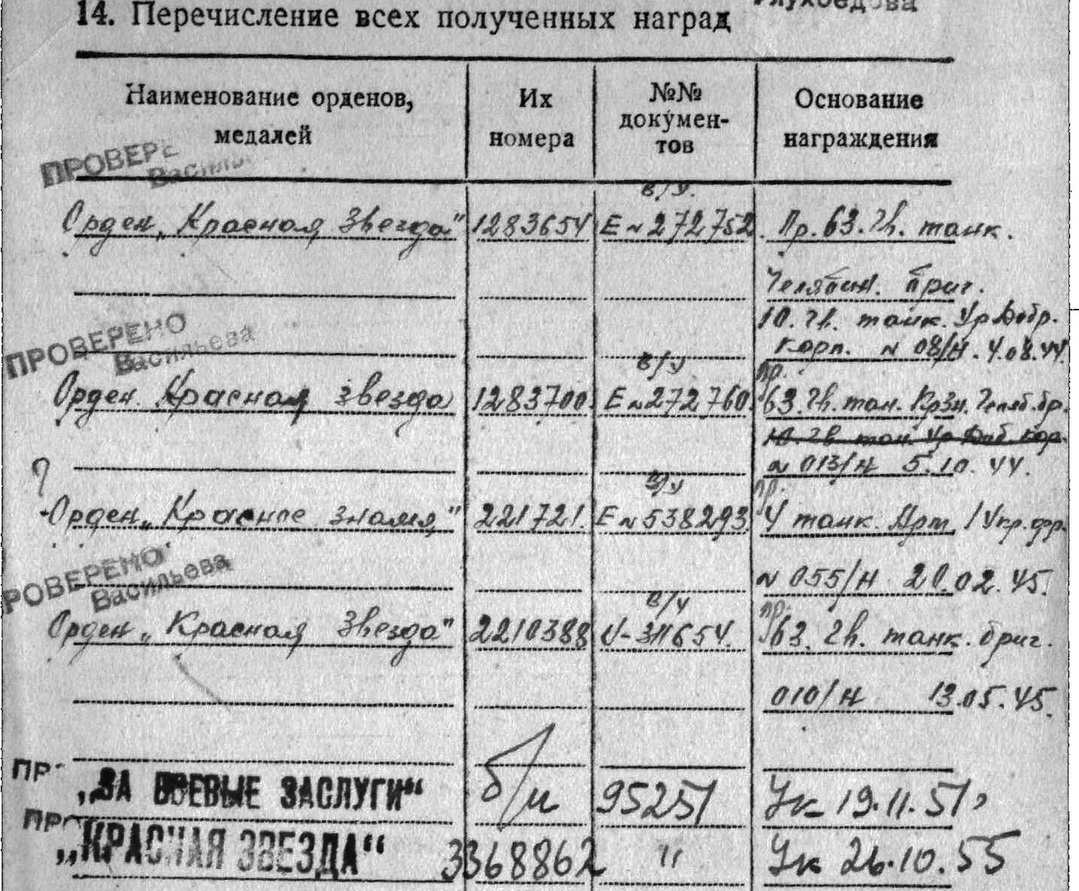 14. Перечисление всех полученных наград
Глухоедова
Наименование орденов, медалей
Их номера
№№ докумен-тов
Основание награждения
ПРОВЕРЕ
Василь
в/у.
Орден „Красная Звезда" 1283654 Е №272752. Пр. 63. Гв. танк.
Челябин. бриг.
10. Гв. танк. Ур Добр.
ПРОВЕРЕНО
Васильева
корп. № 08/н. 4.08.44.
в/у пр.
Орден Красная звезда 1283700. Е №272760. 63. Гв. тан. КрЗн. Челяб. бр.
10. Гв тан Ур Доб кор.
? № 013/н 5.10.44.
в/у пр.
Орден „Красное знамя" 221721. Е №538293. 4 танк. Арм. 1 Укр. фр.
ПРОВЕРЕНО
Васильева
№ 055/н 20.02.45.
в/у пр.
Орден „Красная Звезда" 2210388 И-311654. 63. Гв. танк. бриг.
010/н 13.05.45.
ПР „ЗА БОЕВЫЕ ЗАСЛУГИ“ б/н 95251 Ук 19.11.51
ПР „КРАСНАЯ ЗВЕЗДА“ 3368862 " Ук 26.10.55